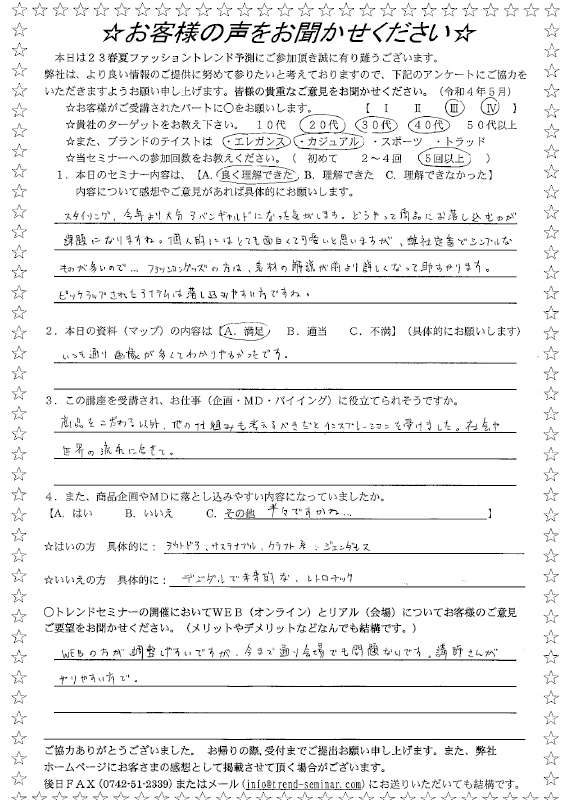 ☆お客様の声をお聞かせください☆
本日は２３春夏ファッショントレンド予測にご参加頂き誠に有り難うございます。
弊社は、より良い情報のご提供に努めて参りたいと考えておりますので、下記のアンケートにご協力を
いただきますようお願い申し上げます。皆様の貴重なご意見をお聞かせください。（令和４年５月）
☆お客様がご受講されたパートに〇をお願いします。 【 Ⅰ Ⅱ Ⅲ Ⅳ 】
☆貴社のターゲットをお教え下さい。 １０代 ２０代 ３０代 ４０代 ５０代以上
☆また、ブランドのテイストは ・エレガンス ・カジュアル ・スポーツ ・トラッド
☆当セミナーへの参加回数をお教えください。（ 初めて ２～４回 ５回以上 ）
１．本日のセミナー内容は、【A. 良く理解できた B. 理解できた C. 理解できなかった】
内容について感想やご意見があれば具体的にお願いします。
スタイリング、今年より大分アバンギャルドになった気がします。どうやって商品にお落し込むのが
課題になりますね。個人的にはとても面白くて可愛いと思いますが、弊社定番でシンプルな
ものが多いので… ファッショングッズの方は、素材の解説が前より詳しくなって助かります。
ピックアップされたアイテムは落し込みやすい方ですね。
２．本日の資料（マップ）の内容は【A. 満足 B. 適当 C. 不満】（具体的にお願いします）
いつも通り画像が多くてわかりやすかったです。
３．この講座を受講され、お仕事（企画・MD・バイイング）に役立てられそうですか。
商品をこだわる以外、他の仕組みも考えるべきだとインスプレーションを受けました。社会や
世界の流れに合せて。
４．また、商品企画やMDに落とし込みやすい内容になっていましたか。
【A. はい B. いいえ C. その他 半々ですかね… 】
☆はいの方 具体的に： アウトドア、サステナブル、クラフト系、ジェンダレス
☆いいえの方 具体的に： デジタルで未来的な、レトロチック
〇トレンドセミナーの開催においてＷＥＢ（オンライン）とリアル（会場）についてお客様のご意見
ご要望をお聞かせください。（メリットやデメリットなどなんでも結構です。）
WEBの方が調整しやすいですが、今まで通り会場でも問題ないです。講師さんが
やりやすい方で。
ご協力ありがとうございました。 お帰りの際、受付までご提出お願い申し上げます。また、弊社
ホームページにお客さまの感想として掲載させて頂く場合がございます。
後日ＦＡＸ(0742-51-2339)またはメール(info@trend-seminar.com)にお送りいただいても結構です。